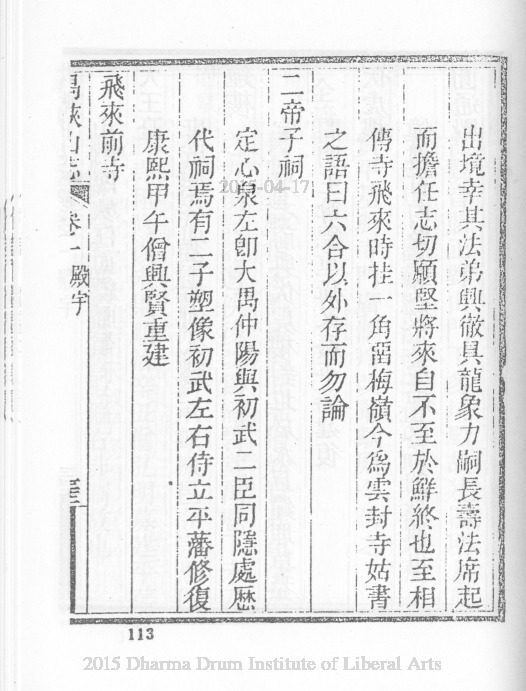 出境幸其法弟興徹具龍象力嗣長壽法席起
而擔任志切願堅將來自不至於鮮終也至相
傳寺飛來時挂一角菴梅嶺今爲雲封寺姑書
之語曰六合以外存而勿論
二帝子祠
定心泉左卽大禺仲陽與初武二臣同隱處歷
代祠焉有二子塑像初武左右侍立平藩修復
康熙甲午僧興賢重建
飛來前寺
禺峽山志 卷一 殿宇
113
2015-04-17
2015 Dharma Drum Institute of Liberal Arts